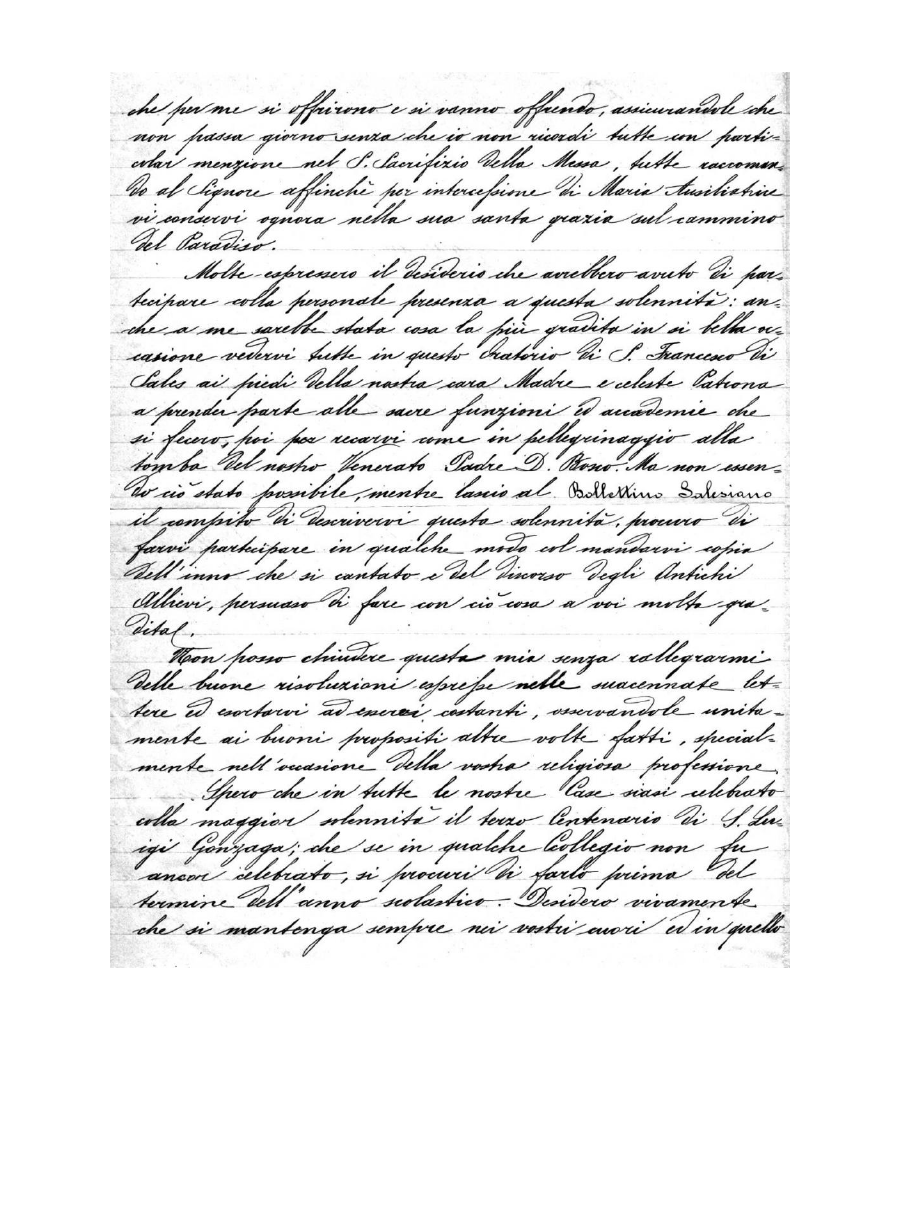 che per me si offrirono e si vanno offrendo, assicurandole che
non passa giorno senza che io non ricordi tutte con parti=
colar menzione nel S. Sacrifizio della Messa, tutte raccoman=
do al Signore affinchè per intercessione di Maria Ausiliatrice
vi conservi ognora nella sua santa grazia sul cammino
del Paradiso.
Molte espressero il desiderio che avrebbero avuto di par=
tecipare colla personale presenza a questa solennità: an=
che a me sarebbe stata cosa la più gradita in sì bella oc=
casione vedervi tutte in questo Oratorio di S. Francesco di
Sales ai piedi della nostra cara Madre e celeste Patrona
a prender parte alle sacre funzioni ed accademie che
si fecero, poi per recarvi come in pellegrinaggio alla
tomba del nostro Venerato Padre D. Bosco. Ma non essen=
do ciò stato possibile, mentre lascio al Bollettino Salesiano
il compito di descrivervi questa solennità, procuro di
farvi partecipare in qualche modo col mandarvi copia
dell'inno che si cantato e del discorso degli Antichi
Allievi, persuaso di fare con ciò cosa a voi molto gra=
dita.
Non posso chiudere questa mia senza rallegrarmi
delle buone risoluzioni espresse nelle suaccennate let=
tere ed esortarvi ad esservi costanti, osservandole unita=
mente ai buoni propositi altre volte fatti, special=
mente nell'occasione della vostra religiosa professione.
Spero che in tutte le nostre Case siasi celebrato
colla maggior solennità il terzo Centenario di S. Lu=
igi Gonzaga; che se in qualche Collegio non fu
ancor celebrato, si procuri di farlo prima del
termine dell'anno scolastico. - Desidero vivamente
che si mantenga sempre nei vostri cuori ed in quello